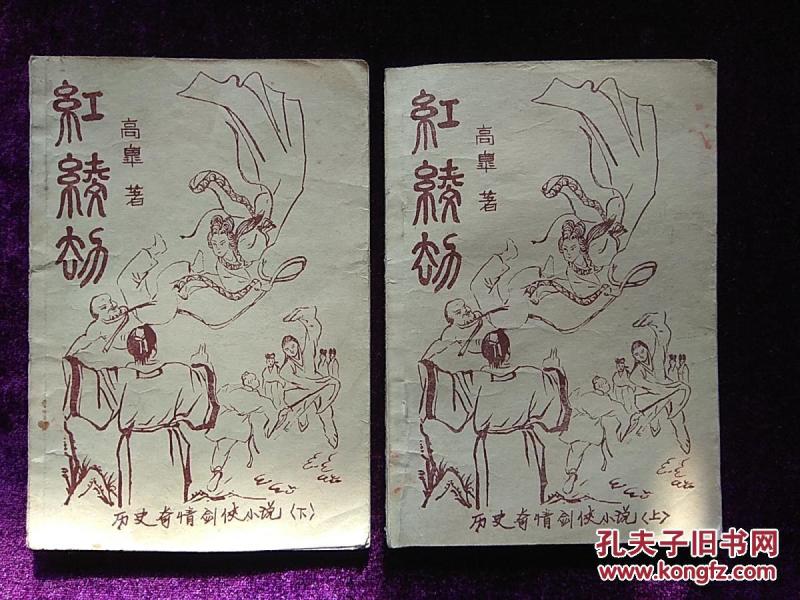 紅綾劫
高臯 著
历史奇情剑侠小说〈下〉
紅綾劫
高臯 著
历史奇情剑侠小说〈上〉
孔夫子旧书网
www.kongfz.com